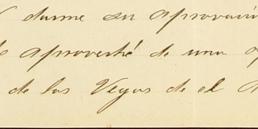 darme su aprovació
aproveché de una
de las Vegas de el